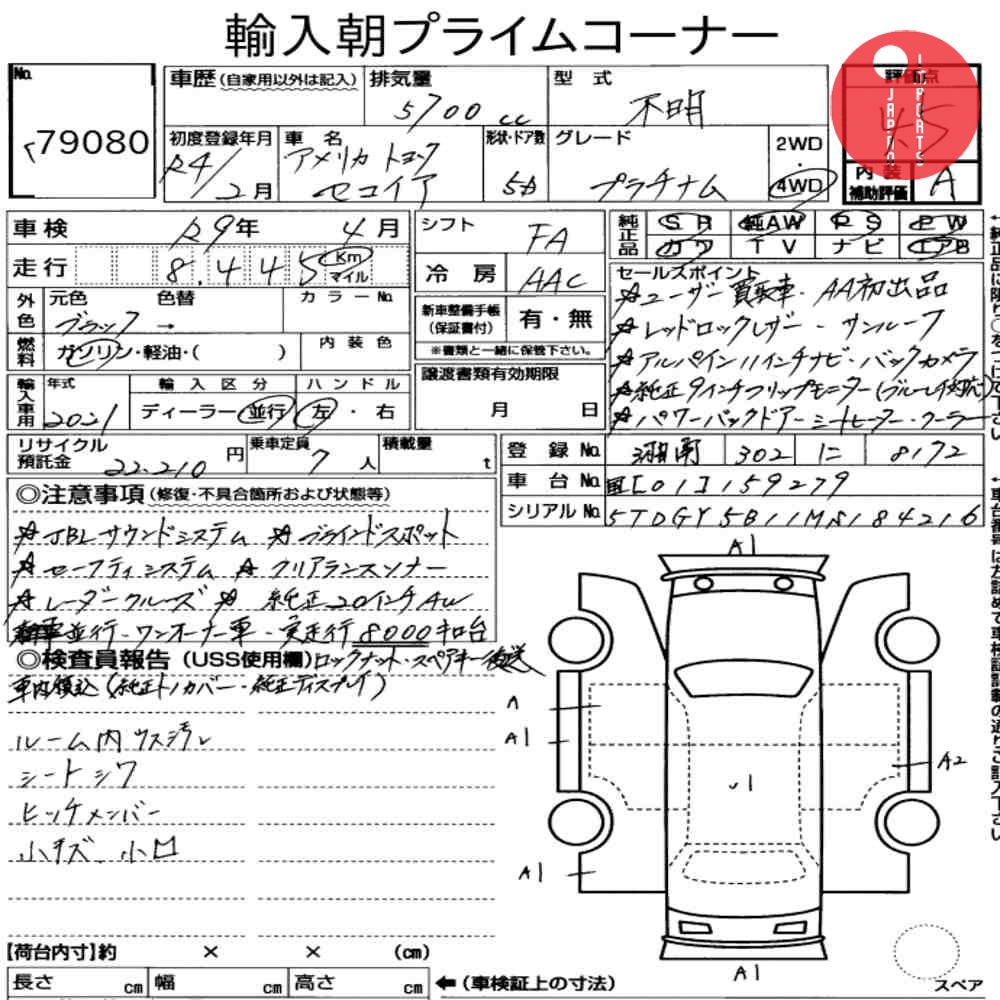 輸入朝プライムコーナー
No. 79080
車歴 (自家用以外は記入)
排気量 5700 cc
型式 不明
評価点 4.5
JAPAN IMPORTS
初度登録年月 R4/2月
車名 アメリカ トヨタ セコイア
形状・ドア数 5D
グレード プラチナム
2WD・4WD
内装補助評価 A
車検 R9年 4月
走行 8,445 Km マイル
シフト FA
冷房 AAC
純正品 SR 純AW PS PW
カワ TV ナビ エアB
外色 元色 ブラック 色替 → カラーNo.
燃料 ガソリン・軽油・( ) 内装色
新車整備手帳(保証書付) 有・無
※書類と一緒に保管下さい。
譲渡書類有効期限 月 日
セールスポイント
☆ユーザー買取車・AA初出品
☆レッドロックレザー・サンルーフ
☆アルパイン11インチナビ・バックカメラ
☆純正9インチフリップモニター(ブルーレイ対応)
☆パワーバックドアー シートヒーター・クーラー
輸入車用 年式 2021
輸入区分 ディーラー・並行
ハンドル 左・右
リサイクル預託金 22,210 円
乗車定員 7人
積載量 t
登録No. 湘南 302 に 8172
車台No. 国[01]159279
シリアルNo. 5TDGY5B11MS184216
◎注意事項 (修復・不具合箇所および状態等)
☆JBLサウンドシステム ☆ブラインドスポット
☆セーフティシステム ☆クリアランスソナー
☆レーダークルーズ ☆純正20インチAW
新車並行・ワンオーナー車・実走行8000キロ台
◎検査員報告 (USS使用欄) ロックナット・スペアキー後送
車内積込(純正トノカバー・純正ディスプレイ)
ルーム内ウス汚レ
シートシワ
ヒッチメンバー
小キズ、小凹
A1
A
A1
A2
A1
A1
【荷台内寸】約 × × (cm)
長さ cm 幅 cm 高さ cm ←(車検証上の寸法)
スペア